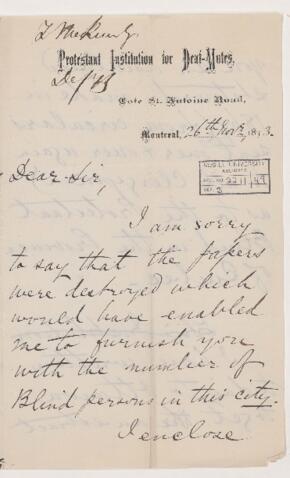 Protestant Institution for Deaf-Mutes,
Cote St. Antoine Road,
Montreal, 26th Novr. 1883.
McGILL UNIVERSITY
ARCHIVES
ACC. NO.
REF.
Dear Sir,
I am sorry
to say that the papers
were destroyed which
would have enabled
me to furnish you
with the number of
Blind persons in this city.
I enclose